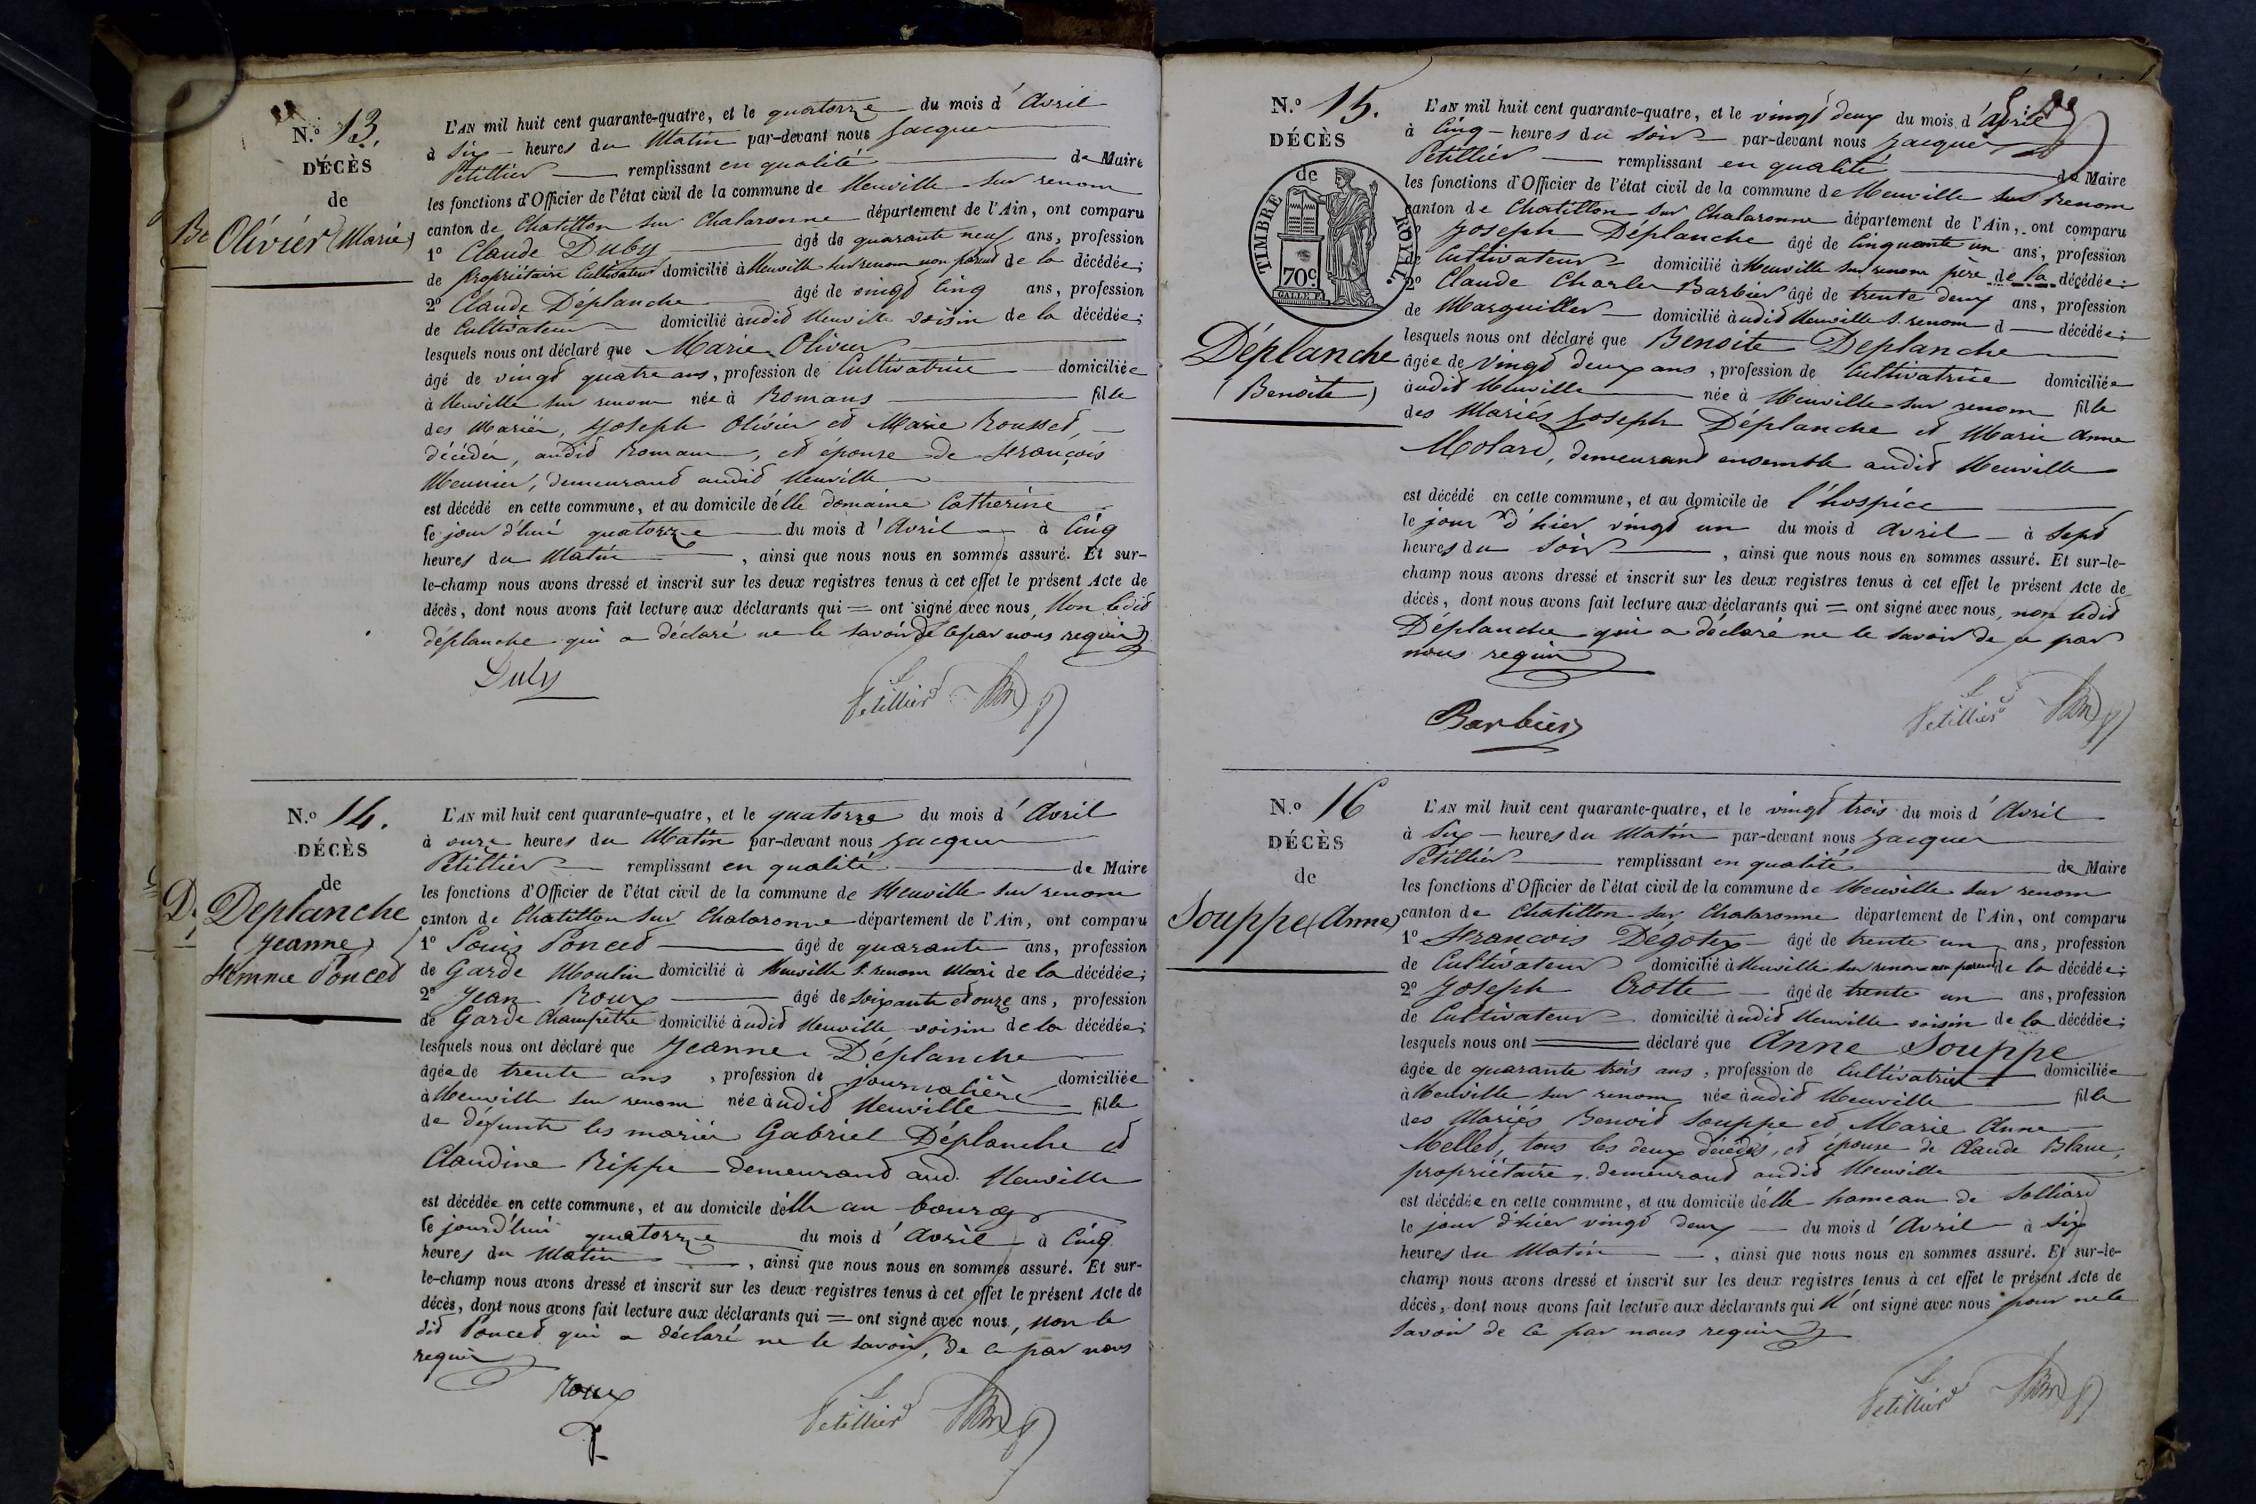 N.º 13.
DÉCÈS
de
Olivier (Marie)
L'AN mil huit cent quarante-quatre, et le quatorze du mois d'Avril
à Six heures du Matin par-devant nous Jacques
Petillier remplissant en qualité de Maire
les fonctions d'Officier de l'état civil de la commune de Neuville sur renom
canton de Chatillon sur Chalaronne département de l'Ain, ont comparu
1º Claude Duby âgé de quarante neuf ans, profession
de Propriétaire Cultivateur domicilié à Neuville sur renom non parent de la décédée;
2º Claude Déplanche âgé de vingt cinq ans, profession
de Cultivateur domicilié audit Neuville voisin de la décédée;
lesquels nous ont déclaré que Marie Olivier
âgé de vingt quatre ans, profession de Cultivatrice domiciliée
à Neuville sur renom née à Romans fille
des Mariés, Joseph Olivier et Marie Rousset,
décédés, audit Romans, et épouse de François
Meunier, demeurant audit Neuville
est décédé en cette commune, et au domicile d'elle domaine Catherine
le jour d'hui quatorze du mois d'Avril à Cinq
heures du Matin, ainsi que nous nous en sommes assuré. Et sur-
le-champ nous avons dressé et inscrit sur les deux registres tenus à cet effet le présent Acte de
décès, dont nous avons fait lecture aux déclarants qui = ont signé avec nous, Non ledit
déplanche qui a déclaré ne le savoir de ce par nous requis
Duby
Petillier
N.º 14.
DÉCÈS
de
Deplanche
Jeanne
femme Poncet
L'AN mil huit cent quarante-quatre, et le quatorze du mois d'Avril
à onze heures du Matin par-devant nous Jacques
Petillier remplissant en qualité de Maire
les fonctions d'Officier de l'état civil de la commune de Neuville sur renom
canton de Chatillon sur Chalaronne département de l'Ain, ont comparu
1º Louis Poncet âgé de quarante ans, profession
de Garde Moulin domicilié à Neuville s. renom Mari de la décédée;
2º Jean Roux âgé de Soixante et onze ans, profession
de Garde Champêtre domicilié audit Neuville voisin de la décédée;
lesquels nous ont déclaré que Jeanne Déplanche
âgée de trente ans, profession de journalière domiciliée
à Neuville sur renom née audit Neuville fille
de défunts les mariés Gabriel Déplanche et
Claudine Rippe demeurant aud. Neuville
est décédée en cette commune, et au domicile d'elle au bourg
le jourd'hui quatorze du mois d'Avril à Cinq
heures du Matin, ainsi que nous nous en sommes assuré. Et sur-
le-champ nous avons dressé et inscrit sur les deux registres tenus à cet effet le présent Acte de
décès, dont nous avons fait lecture aux déclarants qui = ont signé avec nous, Non le
dit Poncet qui a déclaré ne le savoir, de ce par nous
requis
Roux
Petillier
N.º 15.
DÉCÈS
de
TIMBRE ROYAL.
70c
Déplanche
(Benoite)
L'AN mil huit cent quarante-quatre, et le vingt deux du mois d'Avril
à Cinq heures du Soir par-devant nous Jacques
Petillier remplissant en qualité de Maire
les fonctions d'Officier de l'état civil de la commune de Neuville sur renom
canton de Chatillon sur Chalaronne département de l'Ain, ont comparu
Joseph Déplanche âgé de Cinquante un ans, profession
Cultivateur domicilié à Neuville sur renom père de la décédée;
2º Claude Charles Barbier âgé de trente deux ans, profession
de Marguiller domicilié audit Neuville s. renom d décédée;
lesquels nous ont déclaré que Benoite Deplanche
âgée de Vingt deux ans, profession de Cultivatrice domiciliée
audit Neuville née à Neuville sur renom fille
des Mariés Joseph Déplanche et Marie Anne
Molard, demeurant ensemble audit Neuville
est décédé en cette commune, et au domicile de l'hospice
le jour d'hier vingt un du mois d Avril à Sept
heures du Soir, ainsi que nous nous en sommes assuré. Et sur-le-
champ nous avons dressé et inscrit sur les deux registres tenus à cet effet le présent Acte de
décès, dont nous avons fait lecture aux déclarants qui = ont signé avec nous, non ledit
Déplanche qui a déclaré ne le savoir de ce par
nous requis
Barbier
Petillier
N.º 16
DÉCÈS
de
Souppe (Anne)
L'AN mil huit cent quarante-quatre, et le vingt trois du mois d'Avril
à Six heures du Matin par-devant nous Jacques
Petillier remplissant en qualité de Maire
les fonctions d'Officier de l'état civil de la commune de Neuville sur renom
canton de Chatillon sur Chalaronne département de l'Ain, ont comparu
1º François Dégotex âgé de trente un ans, profession
de Cultivateur domicilié à Neuville sur renom non parent de la décédée;
2º Joseph Crotte âgé de trente un ans, profession
de Cultivateur domicilié audit Neuville voisin de la décédée;
lesquels nous ont déclaré que Anne Souppe
âgée de quarante trois ans, profession de Cultivatrice domiciliée
à Neuville sur renom née audit Neuville fille
des Mariés Benoit Souppe et Marie Anne
Mellet, tous les deux décédés, et épouse de Claude Blanc,
propriétaire, demeurant audit Neuville
est décédée en cette commune, et au domicile d'elle hameau de Solliard
le jour d'hier vingt deux du mois d'Avril à Six
heures du Matin, ainsi que nous nous en sommes assuré. Et sur-le-
champ nous avons dressé et inscrit sur les deux registres tenus à cet effet le présent Acte de
décès, dont nous avons fait lecture aux déclarants qui N'ont signé avec nous pour ne le
savoir de ce par nous requis
Petillier